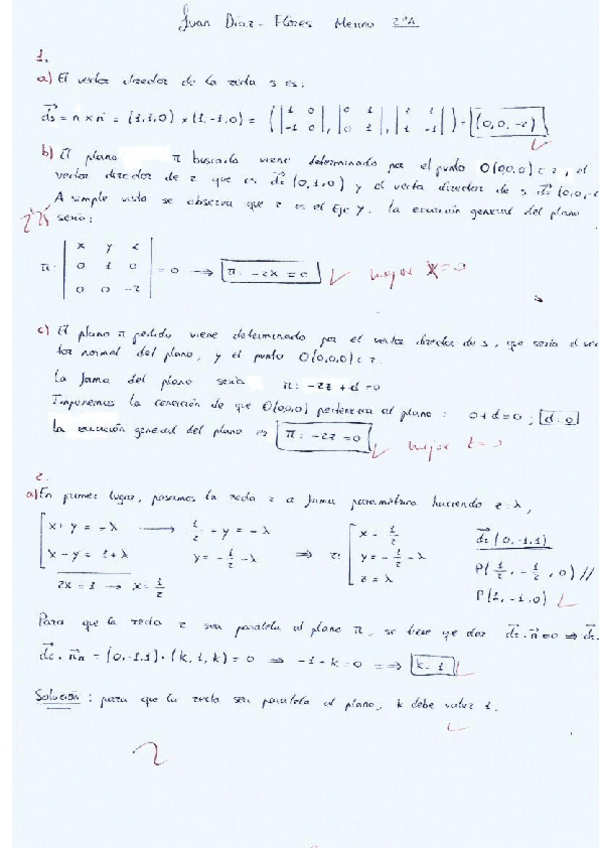 Juan Díaz-Flores Merino 2ºA
1.
a) El vector director de la recta s es:
ds = n × n' = (1,1,0) × (1,-1,0) = (|1 0; -1 0|, |0 1; 0 1|, |1 1; 1 -1|) = (0,0,-2)
b) El plano π buscado viene determinado por el punto O(0,0,0) ∈ r, el
vector director de r que es dr (0,1,0) y el vector director de s ds (0,0,-2
A simple vista se observa que r es el Eje Y. La ecuación general del plano
sería:
π: |x y z; 0 1 0; 0 0 -2| = 0 → π: -2x = 0 mejor x=0
c) El plano π pedido viene determinado por el vector director de s, que sería el vec
tor normal del plano, y el punto O(0,0,0) ∈ r.
La forma del plano sería π: -2z + d = 0
Imponemos la condición de que O(0,0,0) pertenezca al plano: 0+d=0; d=0
La ecuación general del plano es π: -2z = 0 mejor z=0
2.
a) En primer lugar, pasamos la recta r a forma paramétrica haciendo z=λ,
x+y = -λ → 1/2 + y = -λ
x-y = 1+λ y = -1/2 - λ ⇒ r: x = 1/2 y = -1/2 - λ z = λ
2x = 1 → x = 1/2
dr (0,-1,1)
P(1/2, -1/2, 0) //
P(1,-1,0)
Para que la recta r sea paralela al plano π, se tiene que dar dr · n = 0 ⇒ dr.
dr · nπ = (0,-1,1) · (k,1,k) = 0 ⇒ -1+k=0 ⇒ k=1
Solución: para que la recta sea paralela al plano, k debe valer 1.